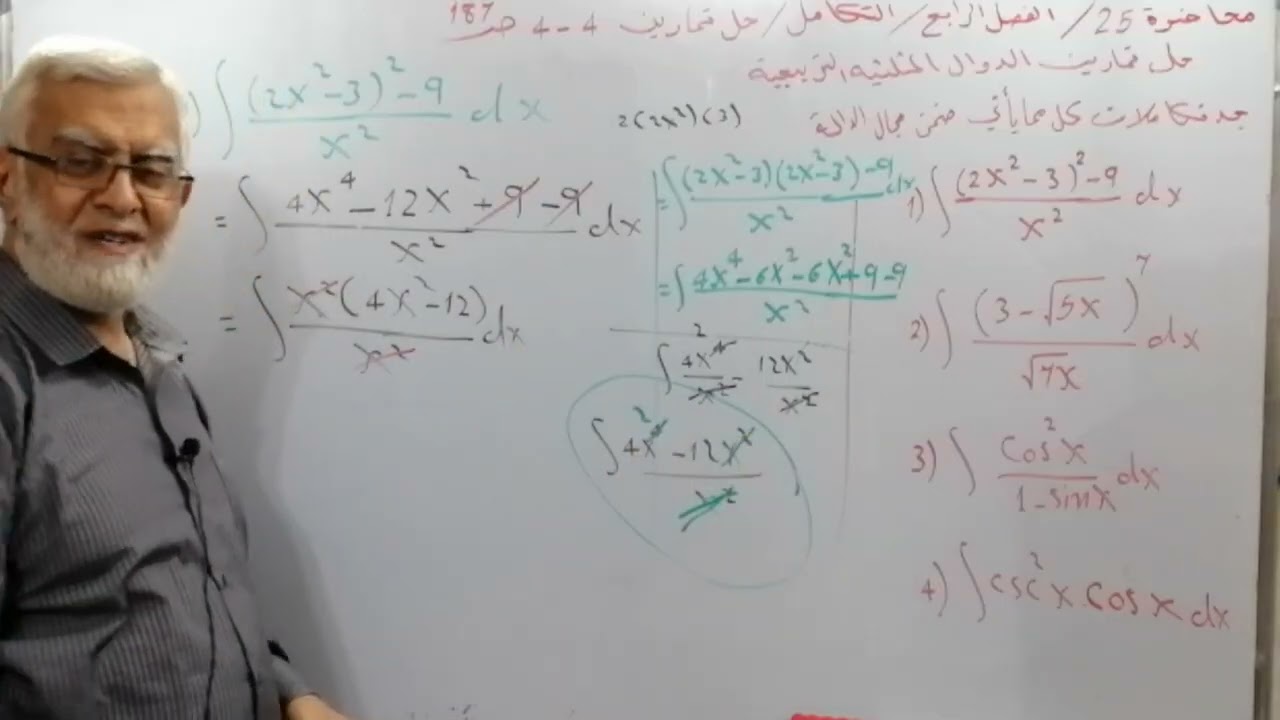 محاضرة 25 / الفصل الرابع / التكامل / حل تمارين 4-4 ص 187
حل تمارين الدوال المثلثية التربيعية
جد تكاملات كل مما يأتي ضمن مجال الدالة
1) ∫ (2x² - 3)² - 9 / x² dx
2) ∫ (3 - √5x)⁷ / √7x dx
3) ∫ cos²x / 1 - sinx dx
4) ∫ csc²x . cosx dx
2(2x²)(3)
= ∫ (2x² - 3)(2x² - 3) - 9 / x² dx
= ∫ 4x⁴ - 6x² - 6x² + 9 - 9 / x²
∫ 4x⁴ / x² - 12x² / x²
∫ 4x² - 12x² / x²
) ∫ (2x² - 3)² - 9 / x² dx
= ∫ 4x⁴ - 12x² + 9 - 9 / x² dx
= ∫ x²(4x² - 12) / x² dx